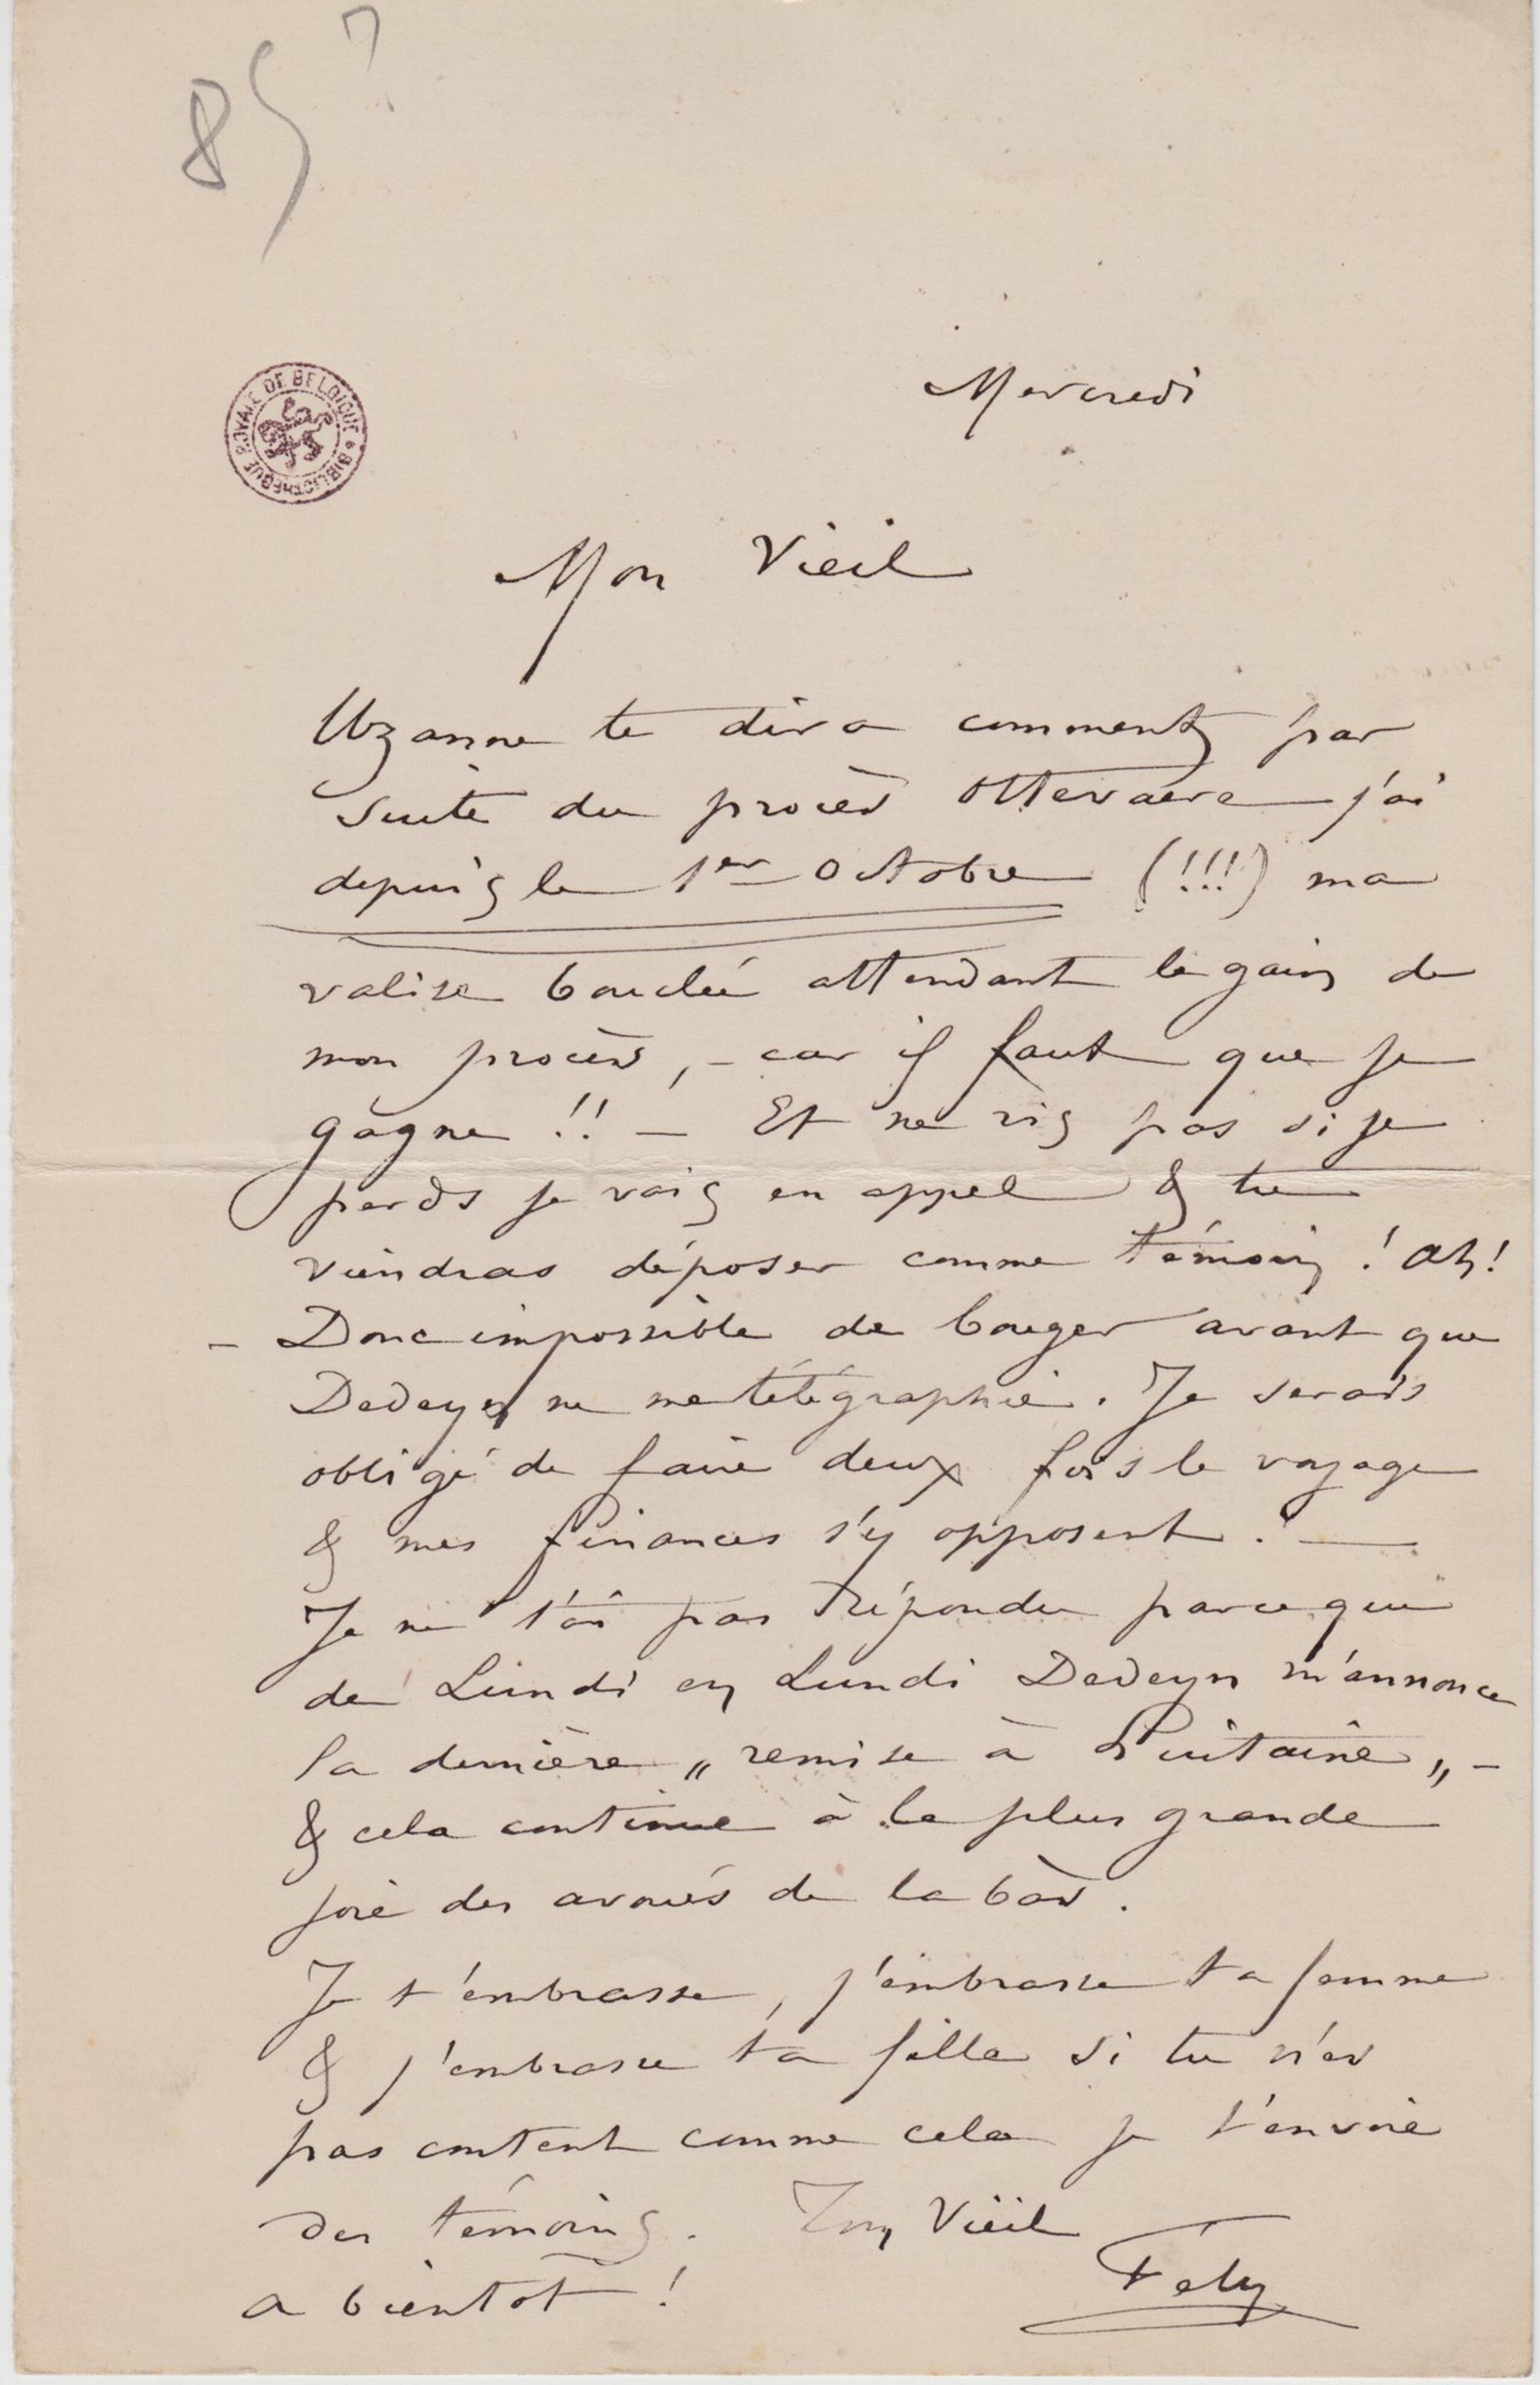 85 ?
Mercredi
BIBLIOTHÈQUE ROYALE DE BELGIQUE
Mon Vieil
Uzanne te dira comment par
suite du procès Ottevaere j'ai
depuis le 1er Octobre (!!!) ma
valise bouclée attendant le gain de
mon procès, – car il faut que je
gagne !! – Et ne ris pas si je
perds je vais en appel & tu
viendras déposer comme témoin ! Ah!
– Donc impossible de bouger avant que
Dedeyn ne me télégraphie. Je serais
obligé de faire deux fois le voyage
& mes finances s'y opposent. –
Je ne t'ai pas répondu parceque
de Lundi en Lundi Dedeyn m'annonce
la dernière „ remise à huitaine „ –
& cela continue à la plus grande
joie des avoués de la bàs.
Je t'embrasse, j'embrasse ta femme
& j'embrasse ta fille si tu n'es
pas content comme cela je t'envoie
des témoins. Ton Vieil
a bientot ! Fély